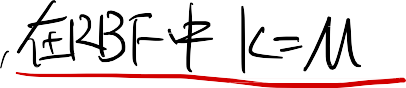 ，在RBF中 K=M